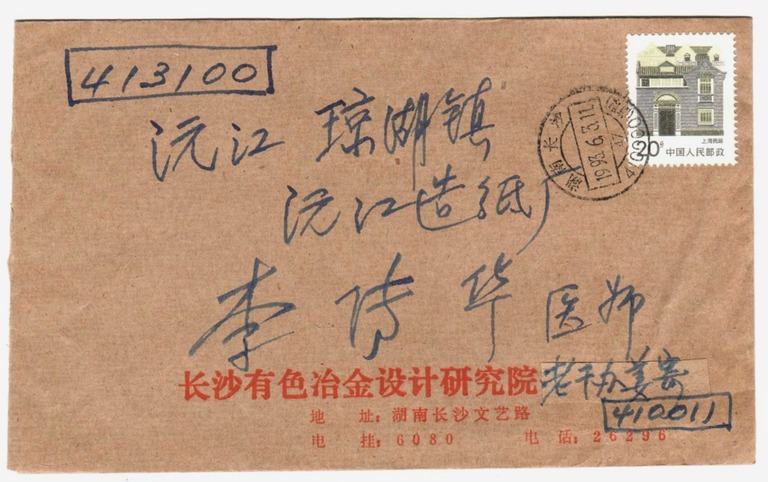 413100
沅江 琼湖镇
沅江造纸厂
李传华 医师
长沙有色冶金设计研究院 老干办姜寄
410011
地 址：湖南长沙文艺路
电 挂：6080 电 话：26296
20分 中国人民邮政
上海民居
湖南 长沙
1993.6.3.11